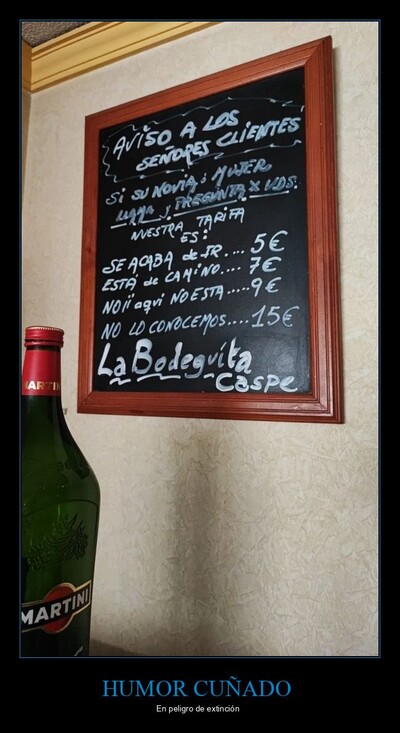 AVISO A LOS
SEÑORES CLIENTES
Si SU NOVIA ó MUJER
LLAMA y PREGUNTA X VDS.
NUESTRA TARIFA
ES:
SE ACABA de IR.... 5€
ESTÁ de CAMINO.... 7€
NO¡¡ aquí NO ESTA.....9€
NO LO CONOCEMOS....15€
La Bodeguita
Caspe
MARTINI
MARTINI
HUMOR CUÑADO
En peligro de extinción